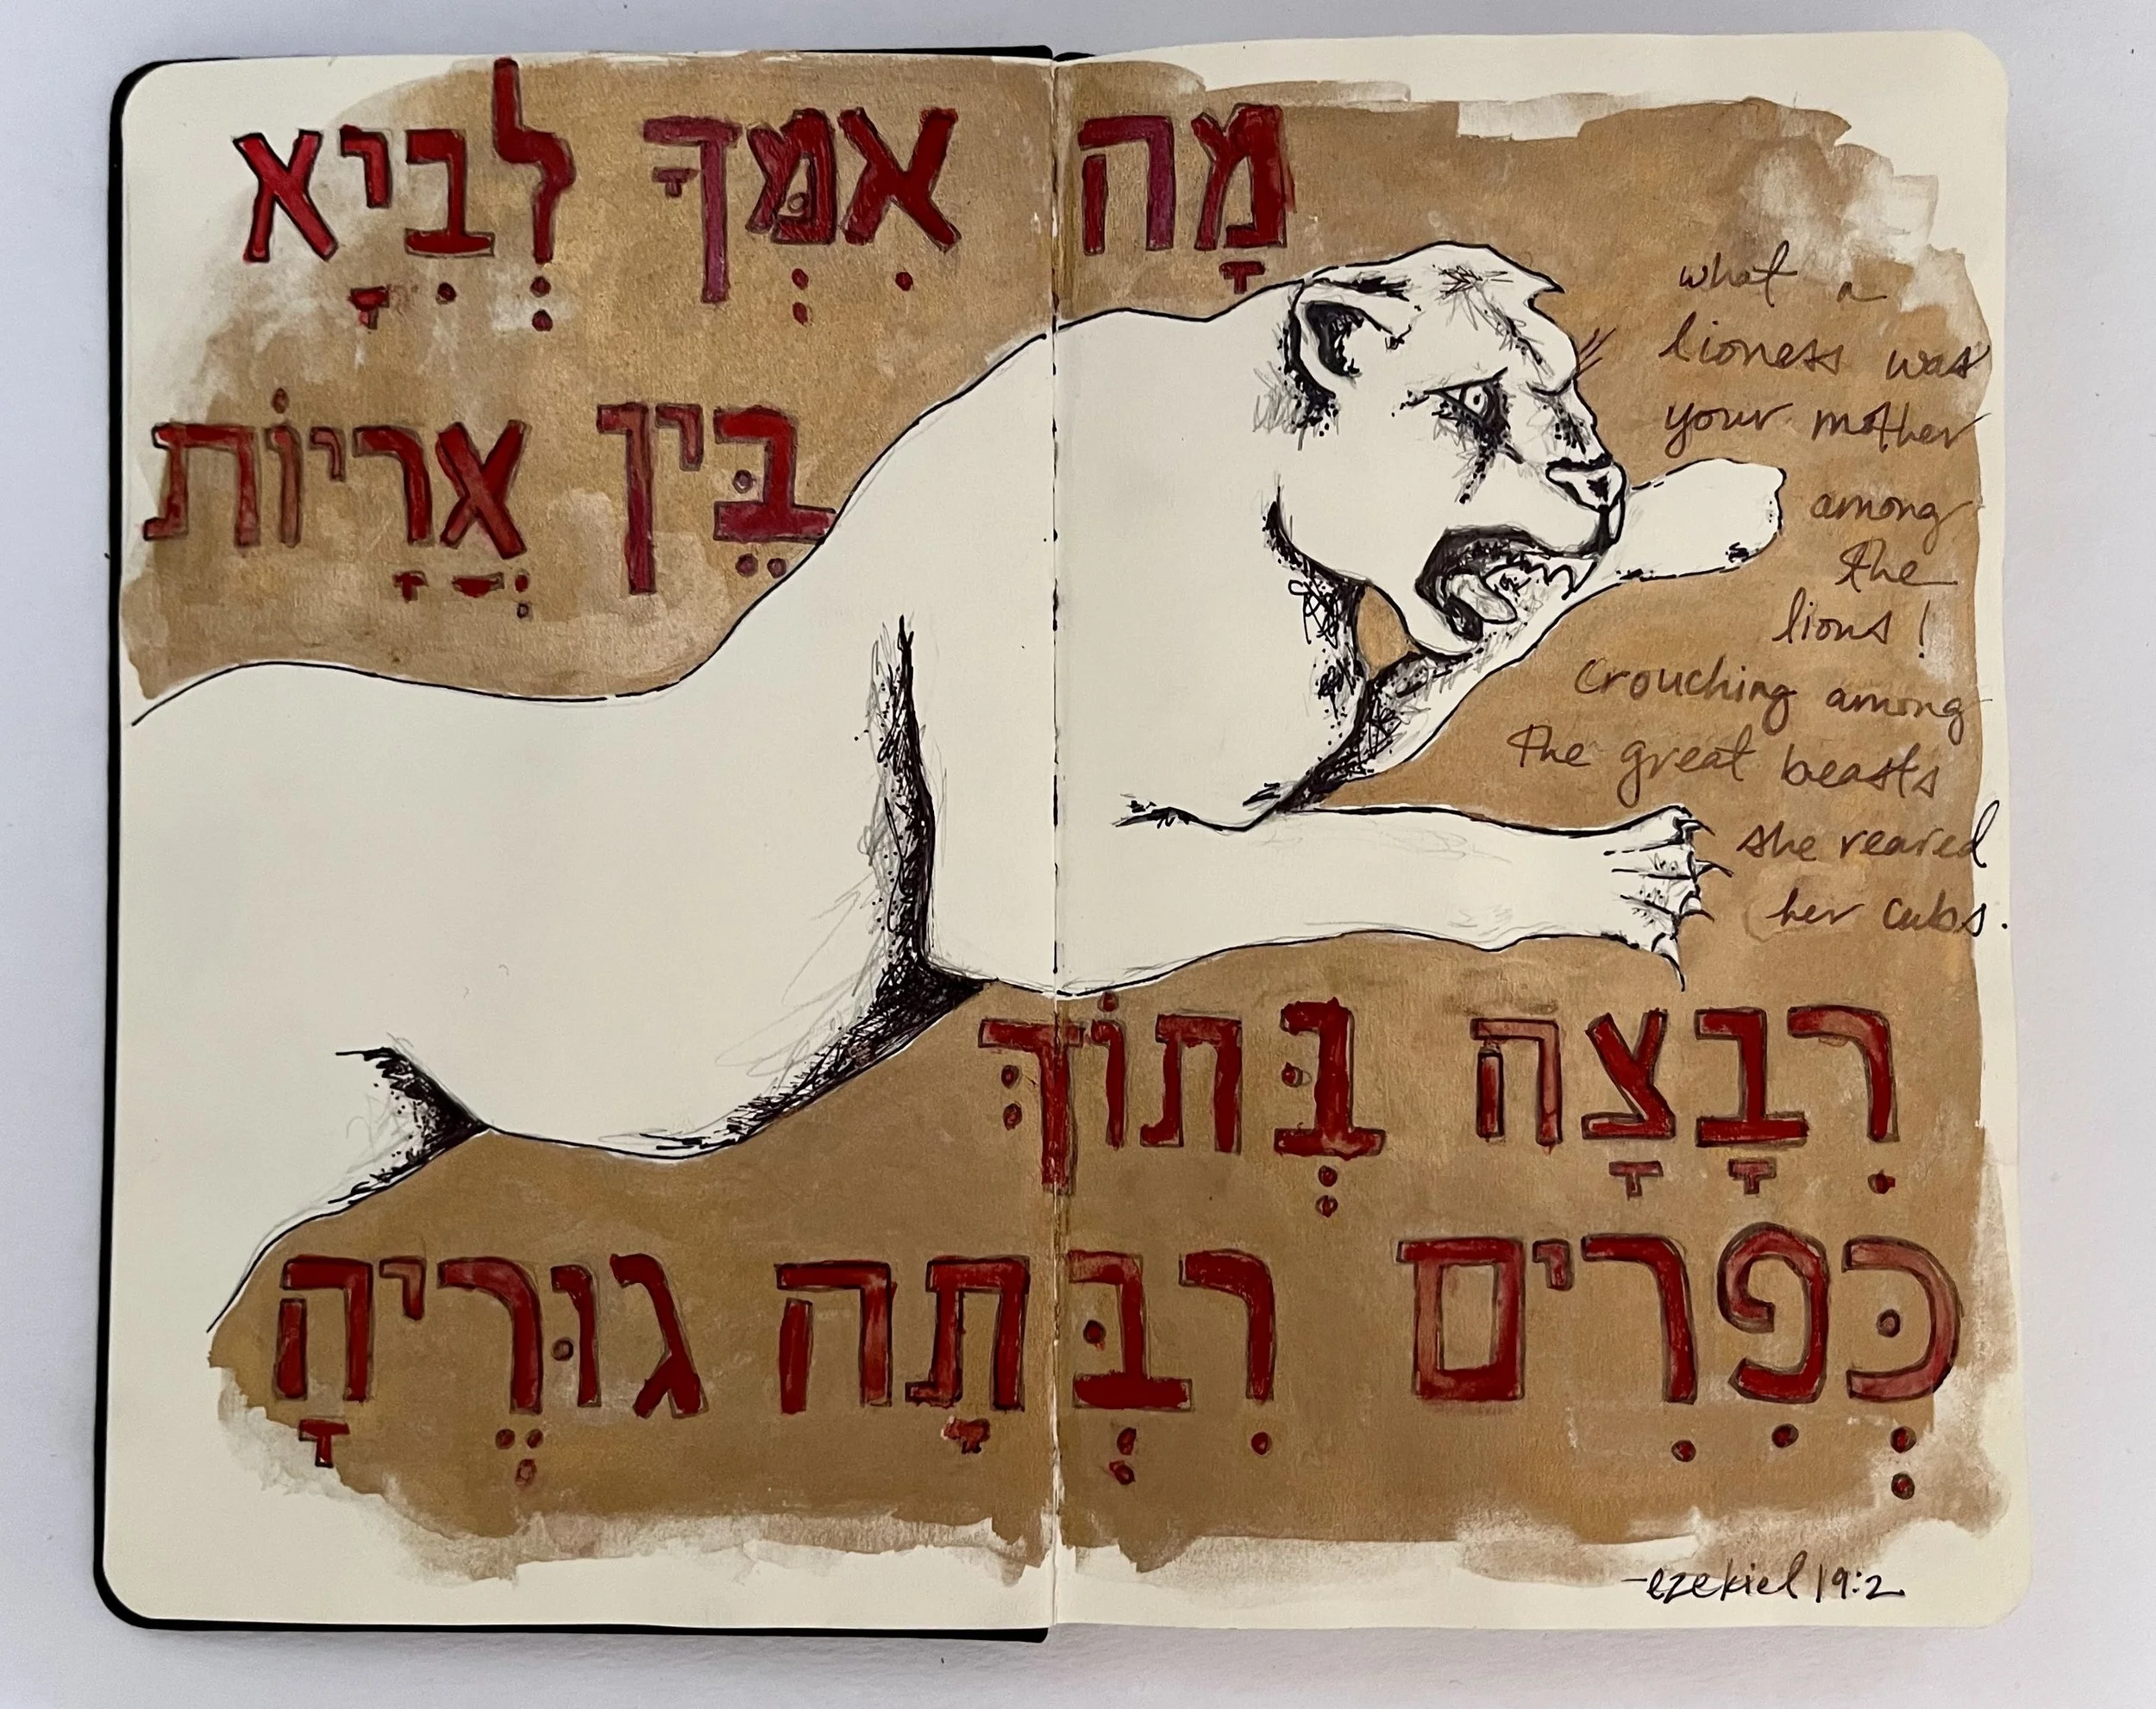 מָה אִמְּךָ לְבִיָא
בֵּין אֲרָיוֹת
what a
lioness was
your mother
among
the
lions!
Crouching among
the great beasts
she reared
her cubs.
רִבָצָה בְּתוֹךְ
כְּפִרִים רִבְּתָה גוּרֶיהָ
-ezekiel 19:2